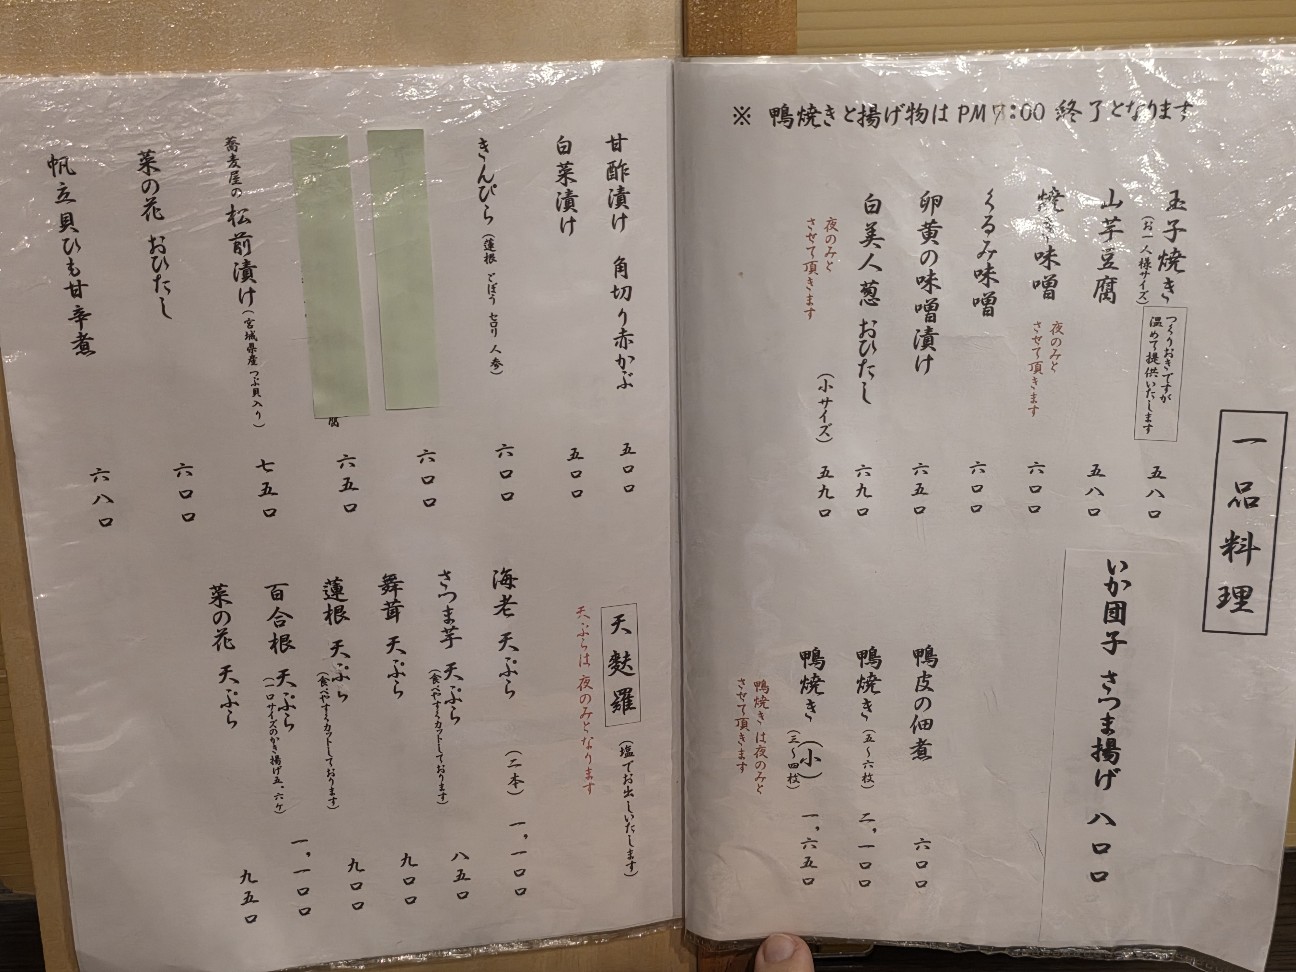 ※ 鴨焼きと揚げ物は PM 7:00 終了となります
一品料理
玉子焼き
(お一人様サイズ)
つくりおきですが
温めて提供いたします
五八〇
山芋豆腐
五八〇
焼き味噌
夜のみと
させて頂きます
六〇〇
くるみ味噌
六〇〇
卵黄の味噌漬け
六五〇
白美人葱 おひたし
六九〇
夜のみと
させて頂きます
(小サイズ)
五九〇
いか団子 さつま揚げ 八〇〇
鴨皮の佃煮
六〇〇
鴨焼き(五〜六枚)
二,一〇〇
鴨焼き(小)
(三〜四枚)
一,六五〇
鴨焼きは夜のみと
させて頂きます
甘酢漬け 角切り赤かぶ
五〇〇
白菜漬け
五〇〇
きんぴら(蓮根 ごぼう セロリ 人参)
六〇〇
六〇〇
腐
六五〇
蕎麦屋の松前漬け(宮城県産 つぶ貝入り)
七五〇
菜の花 おひたし
六〇〇
帆立貝ひも甘辛煮
六八〇
天麩羅
(塩でお出しいたします)
天ぷらは 夜のみとなります
海老 天ぷら
(二本)
一,一〇〇
さつま芋 天ぷら
(食べやすくカットしております)
八五〇
舞茸 天ぷら
九〇〇
蓮根 天ぷら
(食べやすくカットしております)
九〇〇
百合根 天ぷら
(一口サイズのかき揚げ五,六ケ)
一,一〇〇
菜の花 天ぷら
九五〇